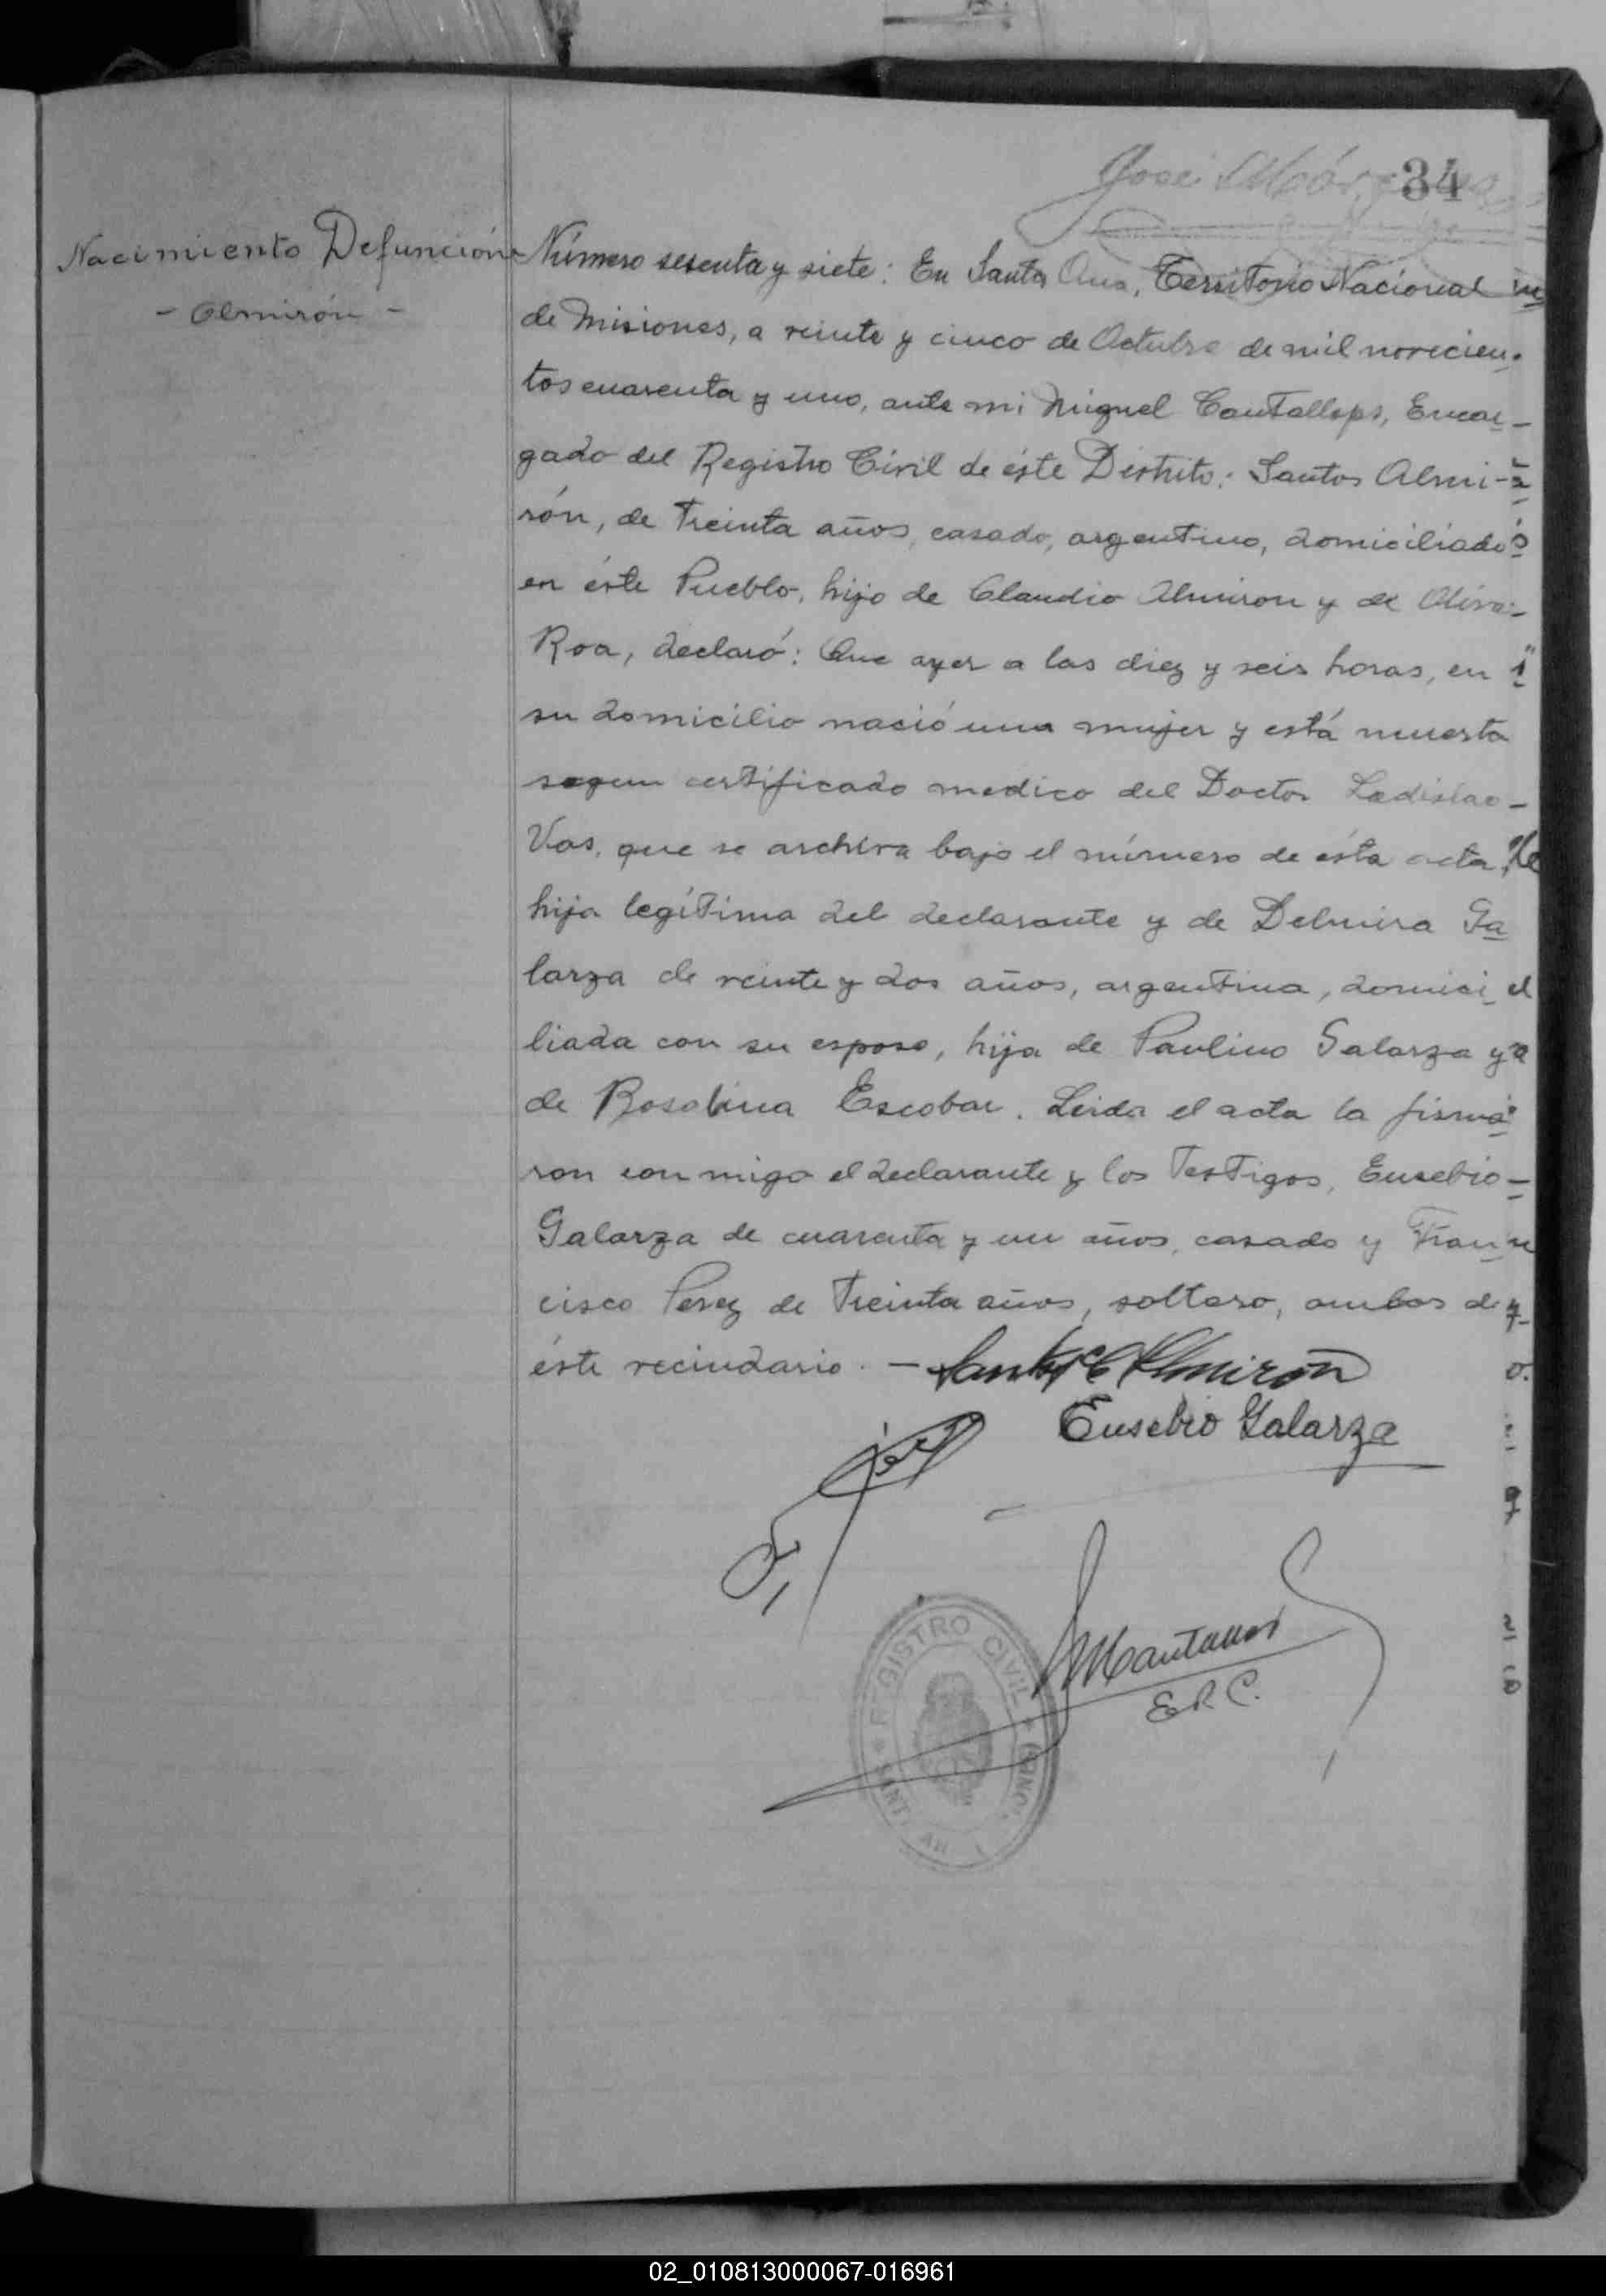 34
Nacimiento Defunción
- Almirón -
Número sesenta y siete: En Santa Ana, Territorio Nacional
de Misiones, a veinte y cinco de Octubre de mil novecien-
tos cuarenta y uno, ante mi Miguel Cantallops, Encar-
gado del Registro Civil de éste Distrito: Santos Almi-
rón, de treinta años, casado, argentino, domiciliado
en éste Pueblo, hijo de Claudio Almiron y de Oliva
Roa, declaró: Que ayer a las diez y seis horas, en
su domicilio nació una mujer y está muerta
segun certificado medico del Doctor Ladislao
Vas, que se archiva bajo el número de ésta acta,
hija legítima del declarante y de Delmira Ga
larza de veinte y dos años, argentina, domici
liada con su esposo, hija de Paulino Galarza y
de Rosalina Escobar. Leida el acta la firma
ron conmigo el declarante y los testigos, Eusebio
Galarza de cuarenta y un años, casado y Fran
cisco Perez de treinta años, soltero, ambos de
éste vecindario. - Santos Almirón
Eusebio Galarza
E.R.C.
REGISTRO CIVIL
02_010813000067-016961